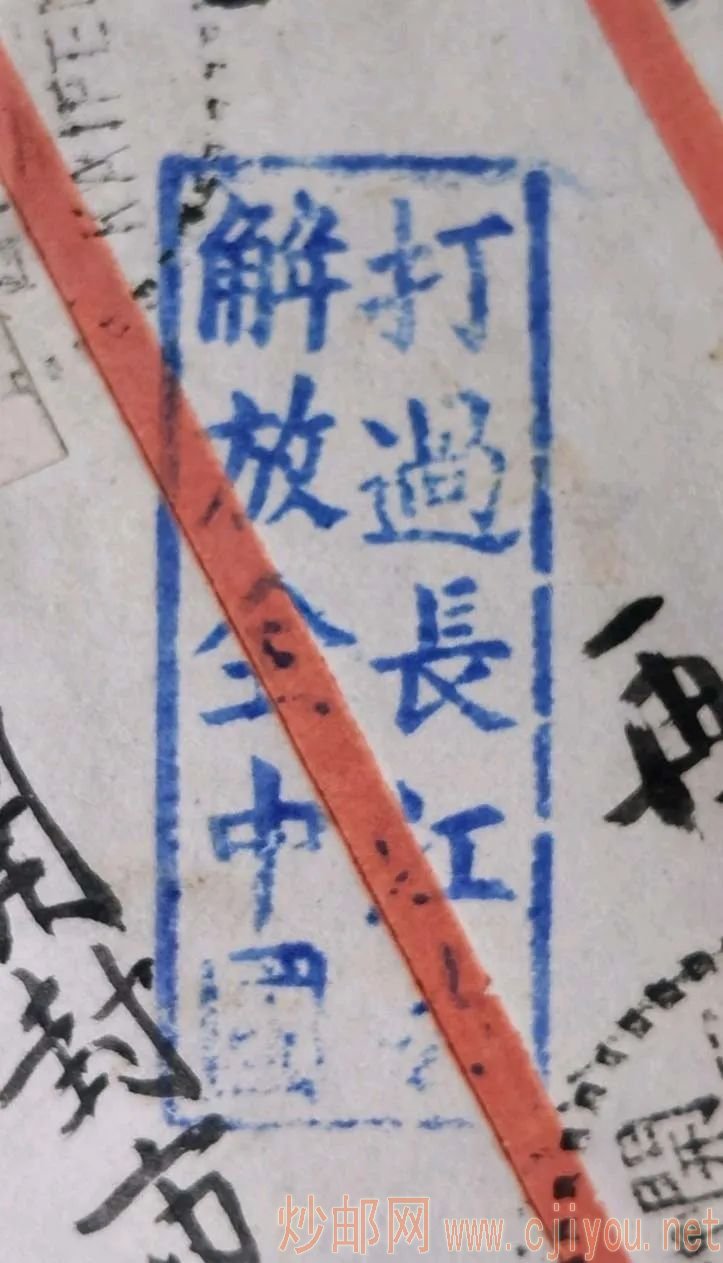 打過長江
解放全中國
封市
開
炒邮网 www.cjiyou.net